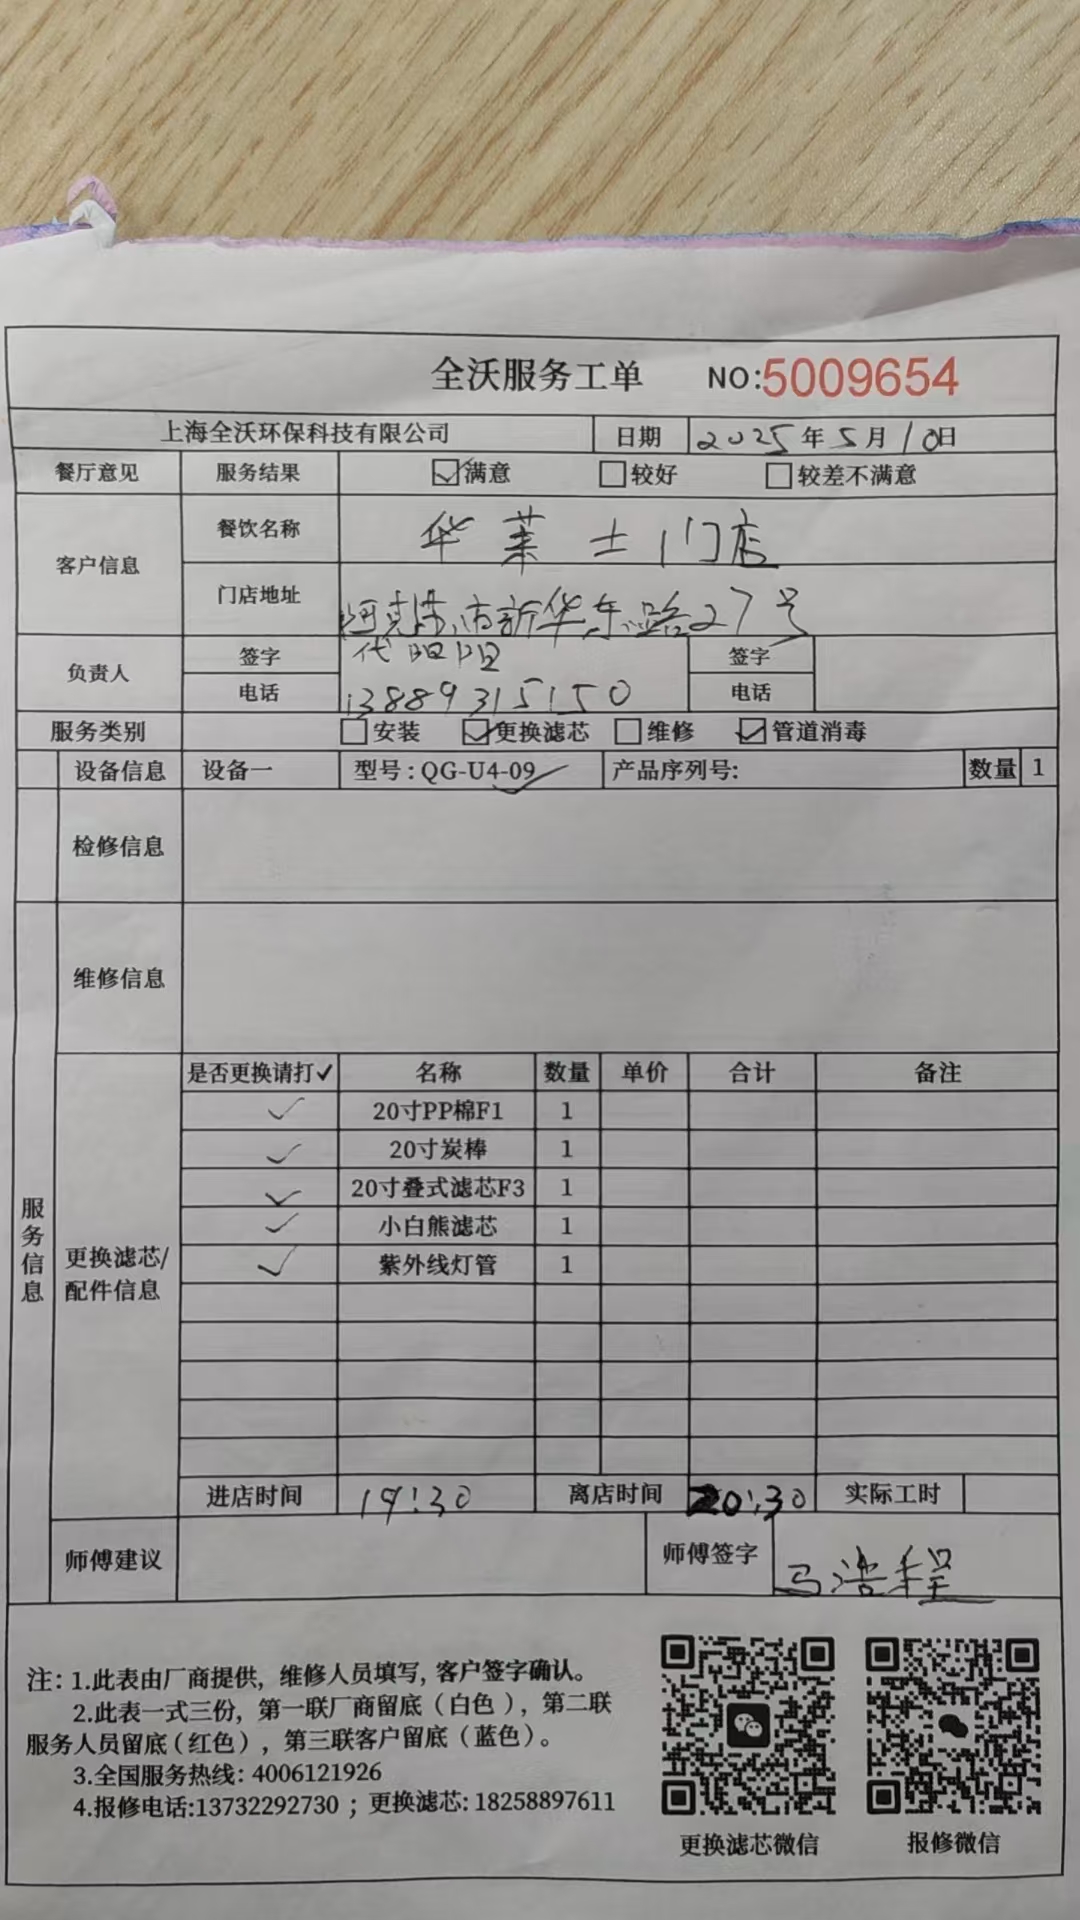 全沃服务工单 NO:5009654
上海全沃环保科技有限公司 日期 2025年5月10日
餐厅意见 服务结果 ☑满意 □较好 □较差不满意
客户信息 餐饮名称 华莱士门店
门店地址 阿克苏市新华东路27号
负责人 签字 代阳阳 签字
电话 13889315150 电话
服务类别 □安装 ☑更换滤芯 □维修 ☑管道消毒
设备信息 设备一 型号:QG-U4-09 ✓ 产品序列号: 数量 1
检修信息
维修信息
服务信息
更换滤芯/配件信息
是否更换请打✓ 名称 数量 单价 合计 备注
✓ 20寸PP棉F1 1
✓ 20寸炭棒 1
✓ 20寸叠式滤芯F3 1
✓ 小白熊滤芯 1
✓ 紫外线灯管 1
进店时间 19:30 离店时间 20:30 实际工时
师傅建议 师傅签字 马浩程
注: 1.此表由厂商提供, 维修人员填写, 客户签字确认。
2.此表一式三份, 第一联厂商留底（白色）, 第二联
服务人员留底(红色）, 第三联客户留底（蓝色）。
3.全国服务热线: 4006121926
4.报修电话:13732292730 ; 更换滤芯: 18258897611
更换滤芯微信 报修微信